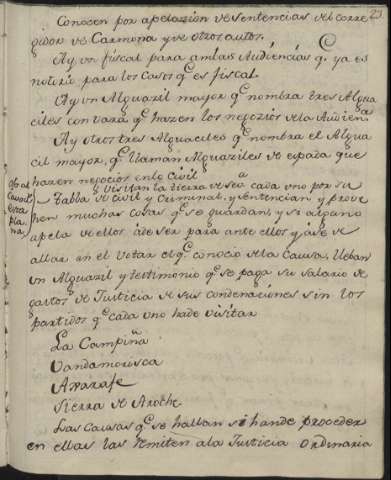 23
Conocen por apelazion de sentencias del corre
gidor de Carmona y de otros autos.
Ay un fiscal para ambas Audiencias q. ya es
notorio para los casos q.e es fiscal.
Ay un Alguazil mayor q.e nombra tres Algua
ciles con vara q.e hazen los negozios de la Audien.a
Ay otros tres Alguaciles q.e nombra el Algua
cil mayor, q.e llaman Alguaziles de espada que
hazen negocios en lo Civil
visitan la tierra de Sev.a cada uno por su
tabla de Civil y Criminal, y sentencian y prove
hen muchas cosas q.e se guardan y si alguno
apela de ellos ade ser para ante ellos y ase de
allar en el votar el q.e conocio de la Causa. lleban
un Alguazil y testimonio q.e se paga su salario de
gastos de Justicia de sus condenaciones sin los
partidos q.e cada uno hade visitar
La Campiña
Vandamorisca
Axarafe
Sierra de Aroche
Las Causas q.e se hallan si hande proceder
en ellas las remiten a la Justicia Ordinaria